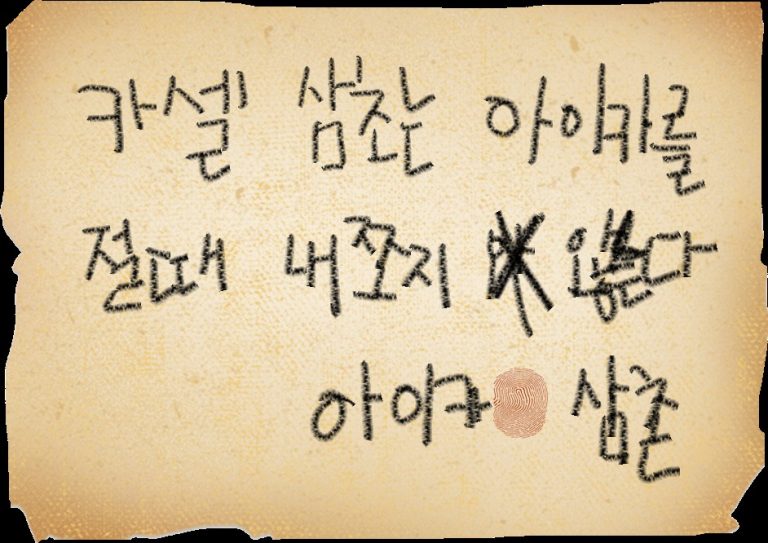 카셀 삼좐 아이카를
절때 내쪼지 않다
아이카 삼촌